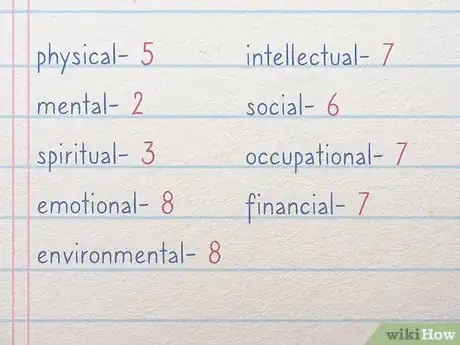 physical- 5
mental- 2
spiritual- 3
emotional- 8
environmental- 8
intellectual- 7
social- 6
occupational- 7
financial- 7
wikiHow